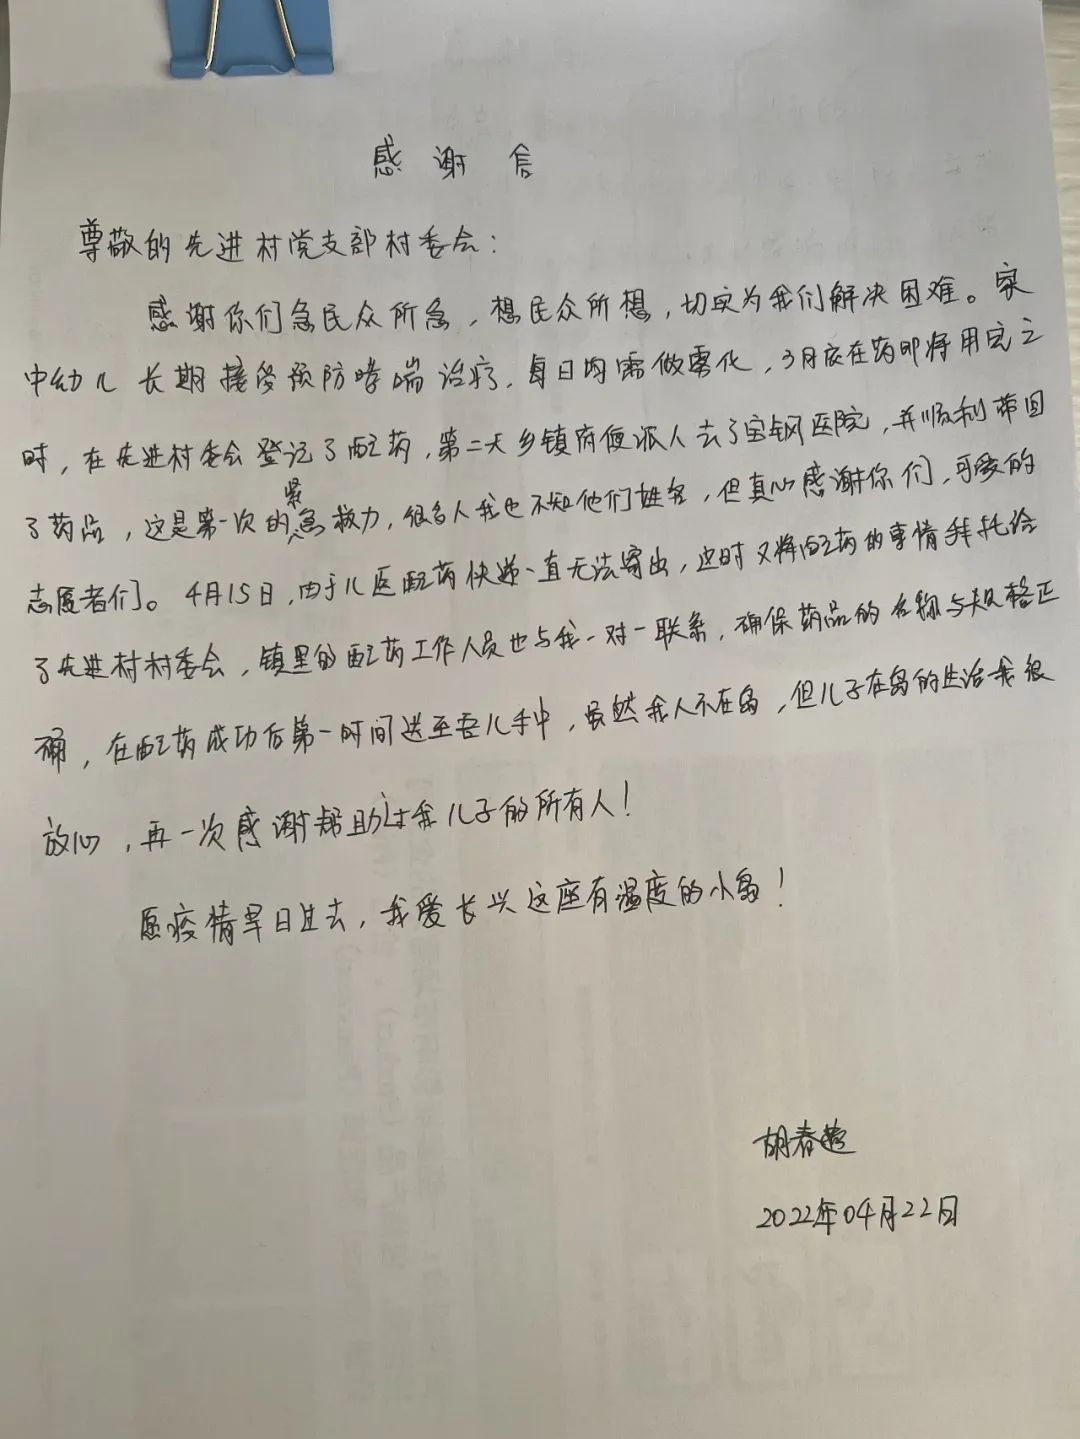 感谢信
尊敬的先进村党支部村委会：
感谢你们急民众所急，想民众所想，切实为我们解决困难。家
中幼儿长期接受预防哮喘治疗，每日均需做雾化，3月底在药即将用完之
时，在先进村委会登记了配药，第二天乡镇府便派人去了宝钢医院，并顺利带回
了药品，这是第一次的紧急救力，很多人我也不知他们姓名，但真心感谢你们，可爱的
志愿者们。4月15日，由于儿医配药快递一直无法寄出，这时又将配药的事情拜托给
了先进村村委会，镇里的配药工作人员也与我一对一联系，确保药品的名称与规格正
确，在配药成功后第一时间送至吾儿手中，虽然我人不在岛，但儿子在岛的生活我很
放心，再一次感谢帮助过我儿子的所有人！
愿疫情早日过去，我爱长兴这座有温度的小岛！
胡春
2022年04月22日